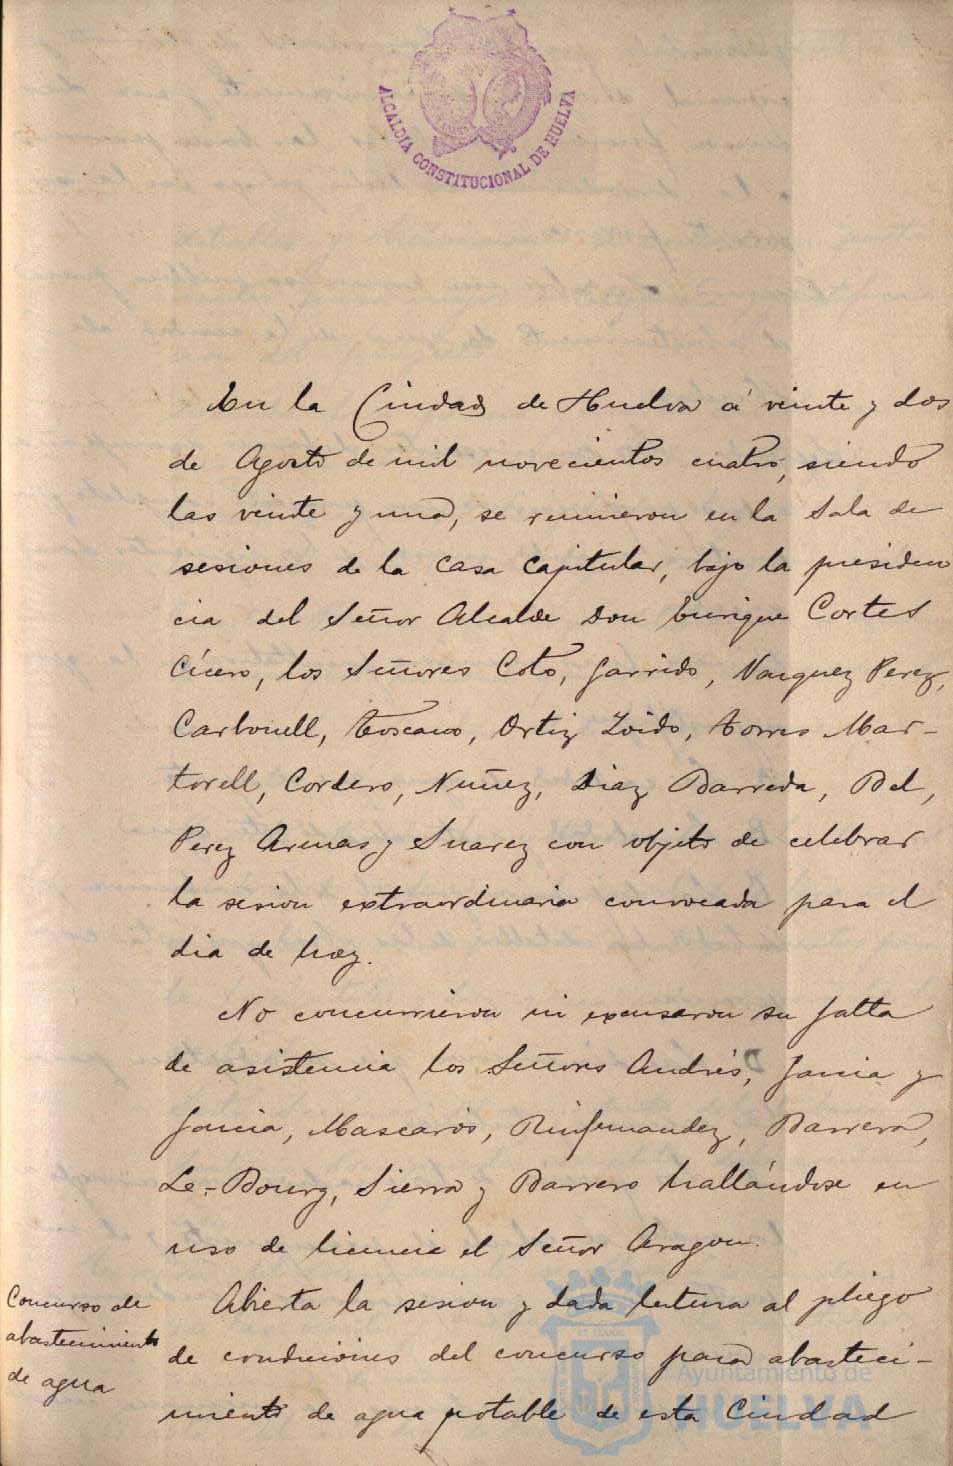 ALCALDIA CONSTITUCIONAL DE HUELVA
En la Ciudad de Huelva á veinte y dos
de Agosto de mil novecientos cuatro, siendo
las veinte y una, se reunieron en la Sala de
sesiones de la Casa Capitular, bajo la presiden
cia del Señor Alcalde Don Enrique Cortes
Cícero, los Señores Coto, Garrido, Vazquez Perez,
Carbonell, Toscano, Ortiz Zoido, Torres Mar-
torell, Cordero, Nuñez, Diaz Barreda, Bel,
Perez Armas y Suarez con objeto de celebrar
la sesion extraordinaria convocada para el
dia de hoy.
No concurrieron ni excusaron su falta
de asistencia los Señores Andrés, Garcia y
Garcia, Mascarós, Rinfernandez, Barrera,
Le-Bourg, Sierra y Barrero hallándose en
uso de licencia el Señor Aragon.
Concurso de
abastecimiento
de agua
Abierta la sesion y dada lectura al pliego
de condiciones del concurso para abasteci-
miento de agua potable de esta Ciudad
Ayuntamiento de
HUELVA